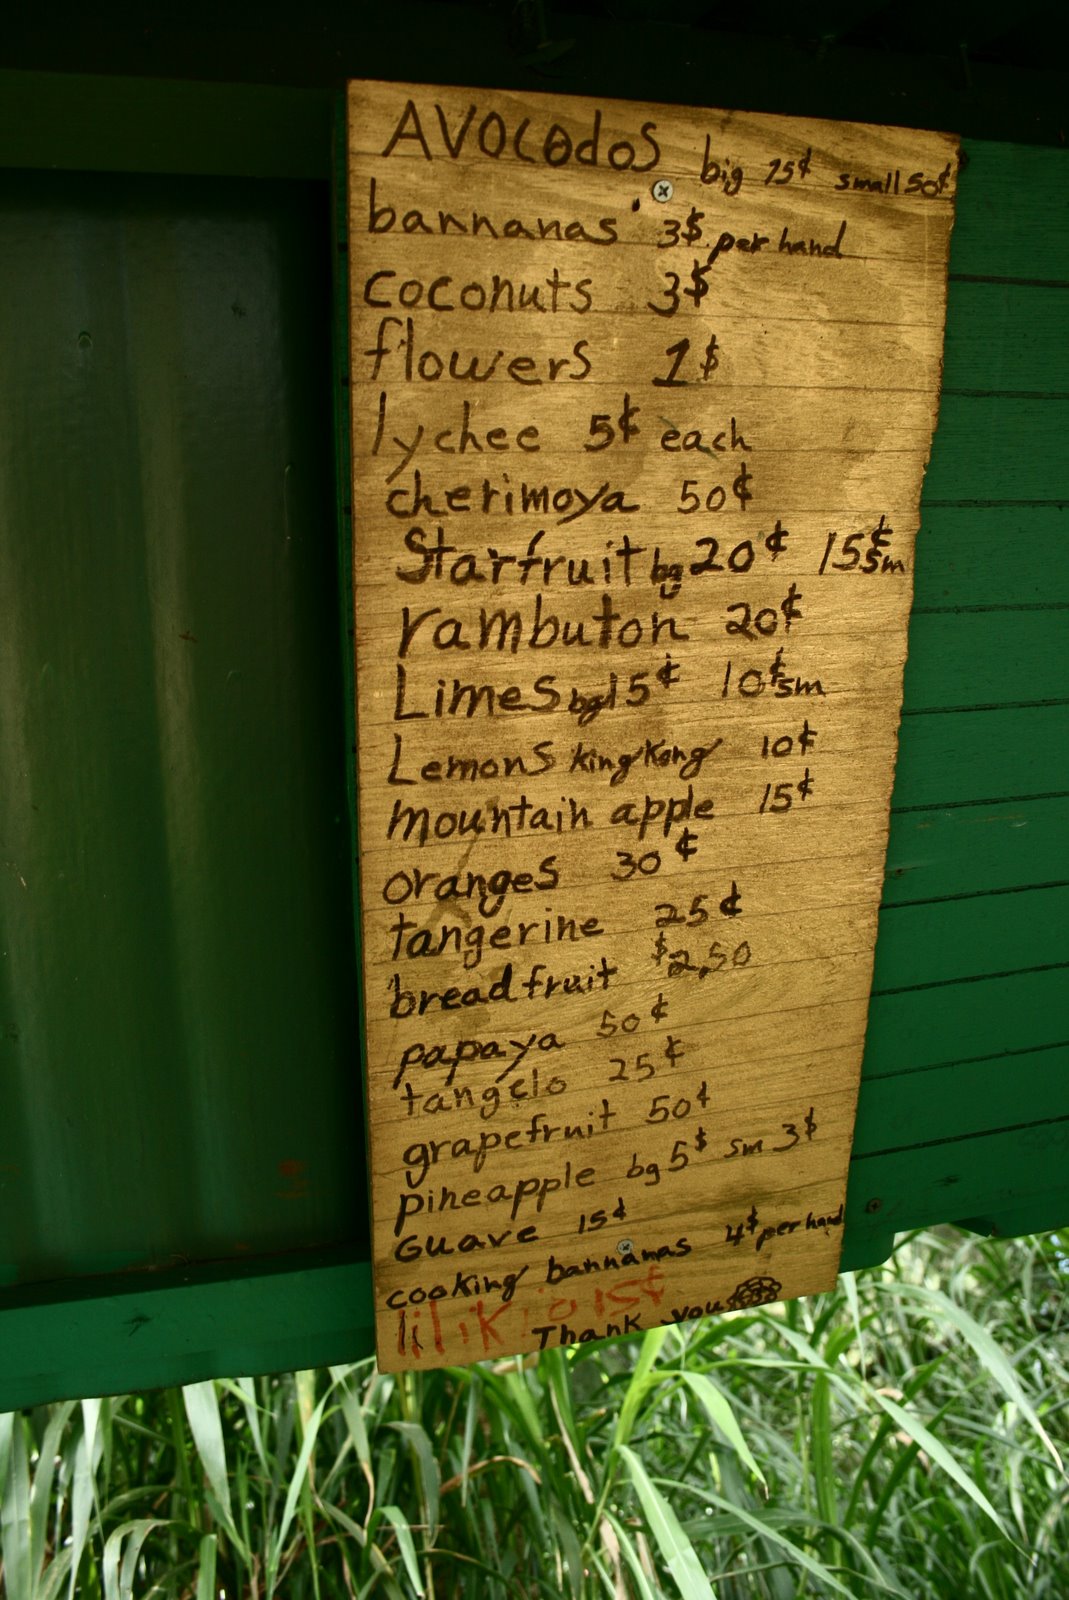 AVOCodoS big 75¢ small 50¢
bannanas 3$ per hand
coconuts 3$
flowers 1$
lychee 5¢ each
cherimoya 50¢
Starfruit bg 20¢ 15¢ sm
rambuton 20¢
Limes bg 15¢ 10¢ sm
Lemons King Kong 10¢
mountain apple 15¢
oranges 30¢
tangerine 25¢
breadfruit $2,50
papaya 50¢
tangelo 25¢
grapefruit 50¢
pineapple bg 5$ sm 3$
Guave 15¢
cooking bannanas 4$ per hand
lilikio 15¢
Thank you